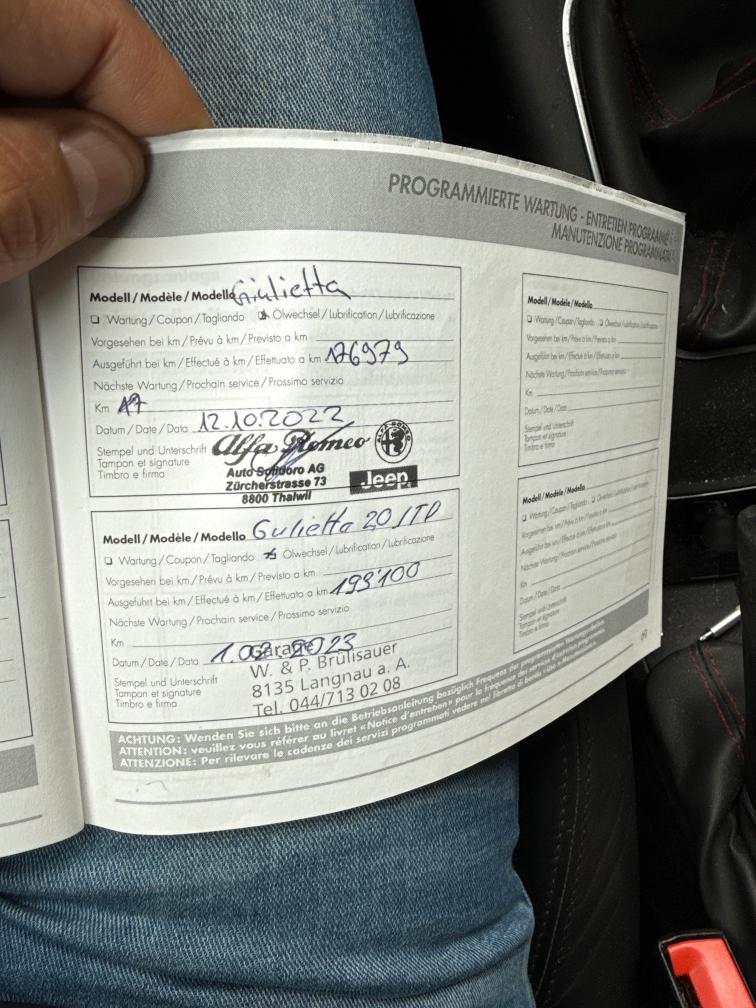 PROGRAMMIERTE WARTUNG - ENTRETIEN PROGRAMMÉ -
MANUTENZIONE PROGRAMMATA
Modell / Modèle / Modello Giulietta
❑ Wartung / Coupon / Tagliando Ölwechsel / Lubrification / Lubrificazione
Vorgesehen bei km / Prévu à km / Previsto a km
Ausgeführt bei km / Effectué à km / Effettuato a km 176979
Nächste Wartung / Prochain service / Prossimo servizio
Km
Datum / Date / Data 12.10.2022
Stempel und Unterschrift
Tampon et signature
Timbro e firma
Alfa Romeo
ALFA ROMEO
Auto Solidoro AG
Zürcherstrasse 73
8800 Thalwil
Jeep
Modell / Modèle / Modello Gulietta 20 JTD
❑ Wartung / Coupon / Tagliando Ölwechsel / Lubrification / Lubrificazione
Vorgesehen bei km / Prévu à km / Previsto a km
Ausgeführt bei km / Effectué à km / Effettuato a km 193'100
Nächste Wartung / Prochain service / Prossimo servizio
Km
Datum / Date / Data 1. 2023
Stempel und Unterschrift
Tampon et signature
Timbro e firma
Garage
W. & P. Brülisauer
8135 Langnau a. A.
Tel. 044/713 02 08
Modell / Modèle / Modello
❑ Wartung / Coupon / Tagliando ❑ Ölwechsel / Lubrification / Lubrificazione
Vorgesehen bei km / Prévu à km / Previsto a km
Ausgeführt bei km / Effectué à km / Effettuato a km
Nächste Wartung / Prochain service / Prossimo servizio
Km
Datum / Date / Data
Stempel und Unterschrift
Tampon et signature
Timbro e firma
Modell / Modèle / Modello
❑ Wartung / Coupon / Tagliando ❑ Ölwechsel / Lubrification / Lubrificazione
Vorgesehen bei km / Prévu à km / Previsto a km
Ausgeführt bei km / Effectué à km / Effettuato a km
Nächste Wartung / Prochain service / Prossimo servizio
Km
Datum / Date / Data
Stempel und Unterschrift
Tampon et signature
Timbro e firma
ACHTUNG: Wenden Sie sich bitte an die Betriebsanleitung bezüglich Frequenz der programmierten Wartungsarbeiten.
ATTENTION: veuillez vous référer au livret «Notice d'entretien» pour la fréquence des services d'entretien programmés.
ATTENZIONE: Per rilevare le cadenze dei servizi programmati vedere nel libretto di bordo «Uso e Manutenzione».
69